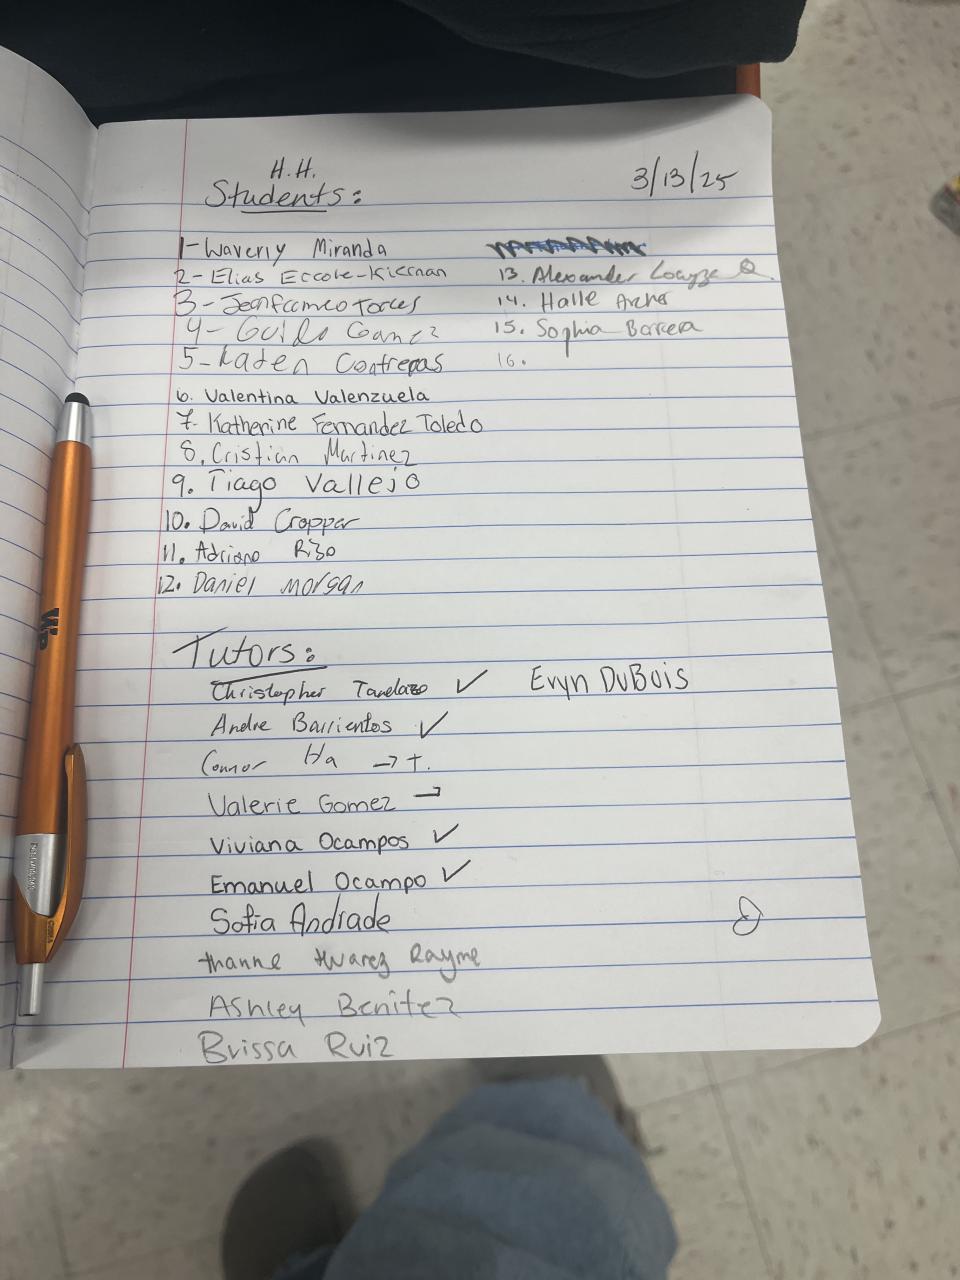 H.H.
Students:
3/13/25
1- Waverly Miranda
2- Elias Eccole-Kiernan
3- Torres
4- Guido Gamez
5- Kaden Contrepas
6. Valentina Valenzuela
7. Katherine Fernandez Toledo
8. Cristian Martinez
9. Tiago Vallejo
10. David Cropper
11. Adriano Rizo
12. Daniel Morgan
13. Alexander
14. Halle Archer
15. Sophia Barrera
16.
Tutors:
Christopher Tandazo ✓
Evyn DuBois
Andre Barrientos ✓
Connor Ha → t.
Valerie Gomez →
Viviana Ocampos ✓
Emanuel Ocampo ✓
Sofia Andrade
Rayme
Ashley Benitez
Brissa Ruiz